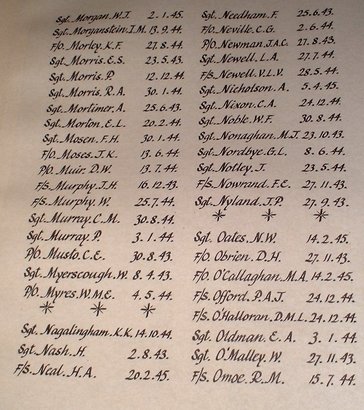 Sgt. Morgan. W.J. 2. 1. 45.
Sgt. Morganstein. I.M. 13. 9. 44.
F/O. Morley. K.F. 27. 8. 44.
Sgt. Morris. E.S. 23. 5. 43.
Sgt. Morris. P. 12. 12. 44.
Sgt. Morris. R.A. 30. 1. 44.
Sgt. Mortimer. A. 25. 6. 43.
Sgt. Morton. E.L. 20. 2. 44.
Sgt. Mosen. F.H. 30. 1. 44.
F/O. Moses. J.K. 13. 6. 44.
P/O. Muir. D.W. 13. 7. 44.
F/S. Murphy. J.H. 16. 12. 43.
F/S. Murphy. W. 25. 7. 44.
Sgt. Murray. C.M. 30. 8. 44.
Sgt. Murray. P. 3. 1. 44.
P/O. Musto. C.E. 30. 8. 43.
Sgt. Myerscough. W. 8. 4. 43.
P/O. Myres. W.M.E. 4. 5. 44.
Sgt. Nagalingham. K.K. 14. 10. 44.
Sgt. Nash. H. 2. 8. 43.
F/S. Neal. H.A. 20. 2. 45.
Sgt. Needham. F. 25. 6. 43.
F/O. Neville. C.G. 2. 6. 44.
P/O. Newman. J.A.C. 27. 8. 43.
Sgt. Newell. L.A. 27. 7. 44.
F/S. Newell. V.L.V. 28. 5. 44.
Sgt. Nicholson. A. 5. 4. 45.
Sgt. Nixon. C.A. 24. 12. 44.
Sgt. Noble. W.F. 30. 8. 44.
Sgt. Nonaghan. M.J. 23. 10. 43.
Sgt. Nordbye. G.L. 8. 6. 44.
Sgt. Notley. J. 23. 5. 44.
F/S. Nowrand. F.E. 27. 11. 43.
Sgt. Nyland. J.P. 27. 9. 43.
Sgt. Oates. N.W. 14. 2. 45.
F/O. O'Brien. D.H. 27. 11. 43.
F/O. O'Callaghan. M.A. 14. 2. 45.
F/S. Offord. P.A.J. 24. 12. 44.
F/S. O'Halloran. D.M.L. 24. 12. 44.
Sgt. Oldman. E.A. 3. 1. 44.
Sgt. O'Malley. W. 27. 11. 43.
F/S. Omoe. R.M. 15. 7. 44.